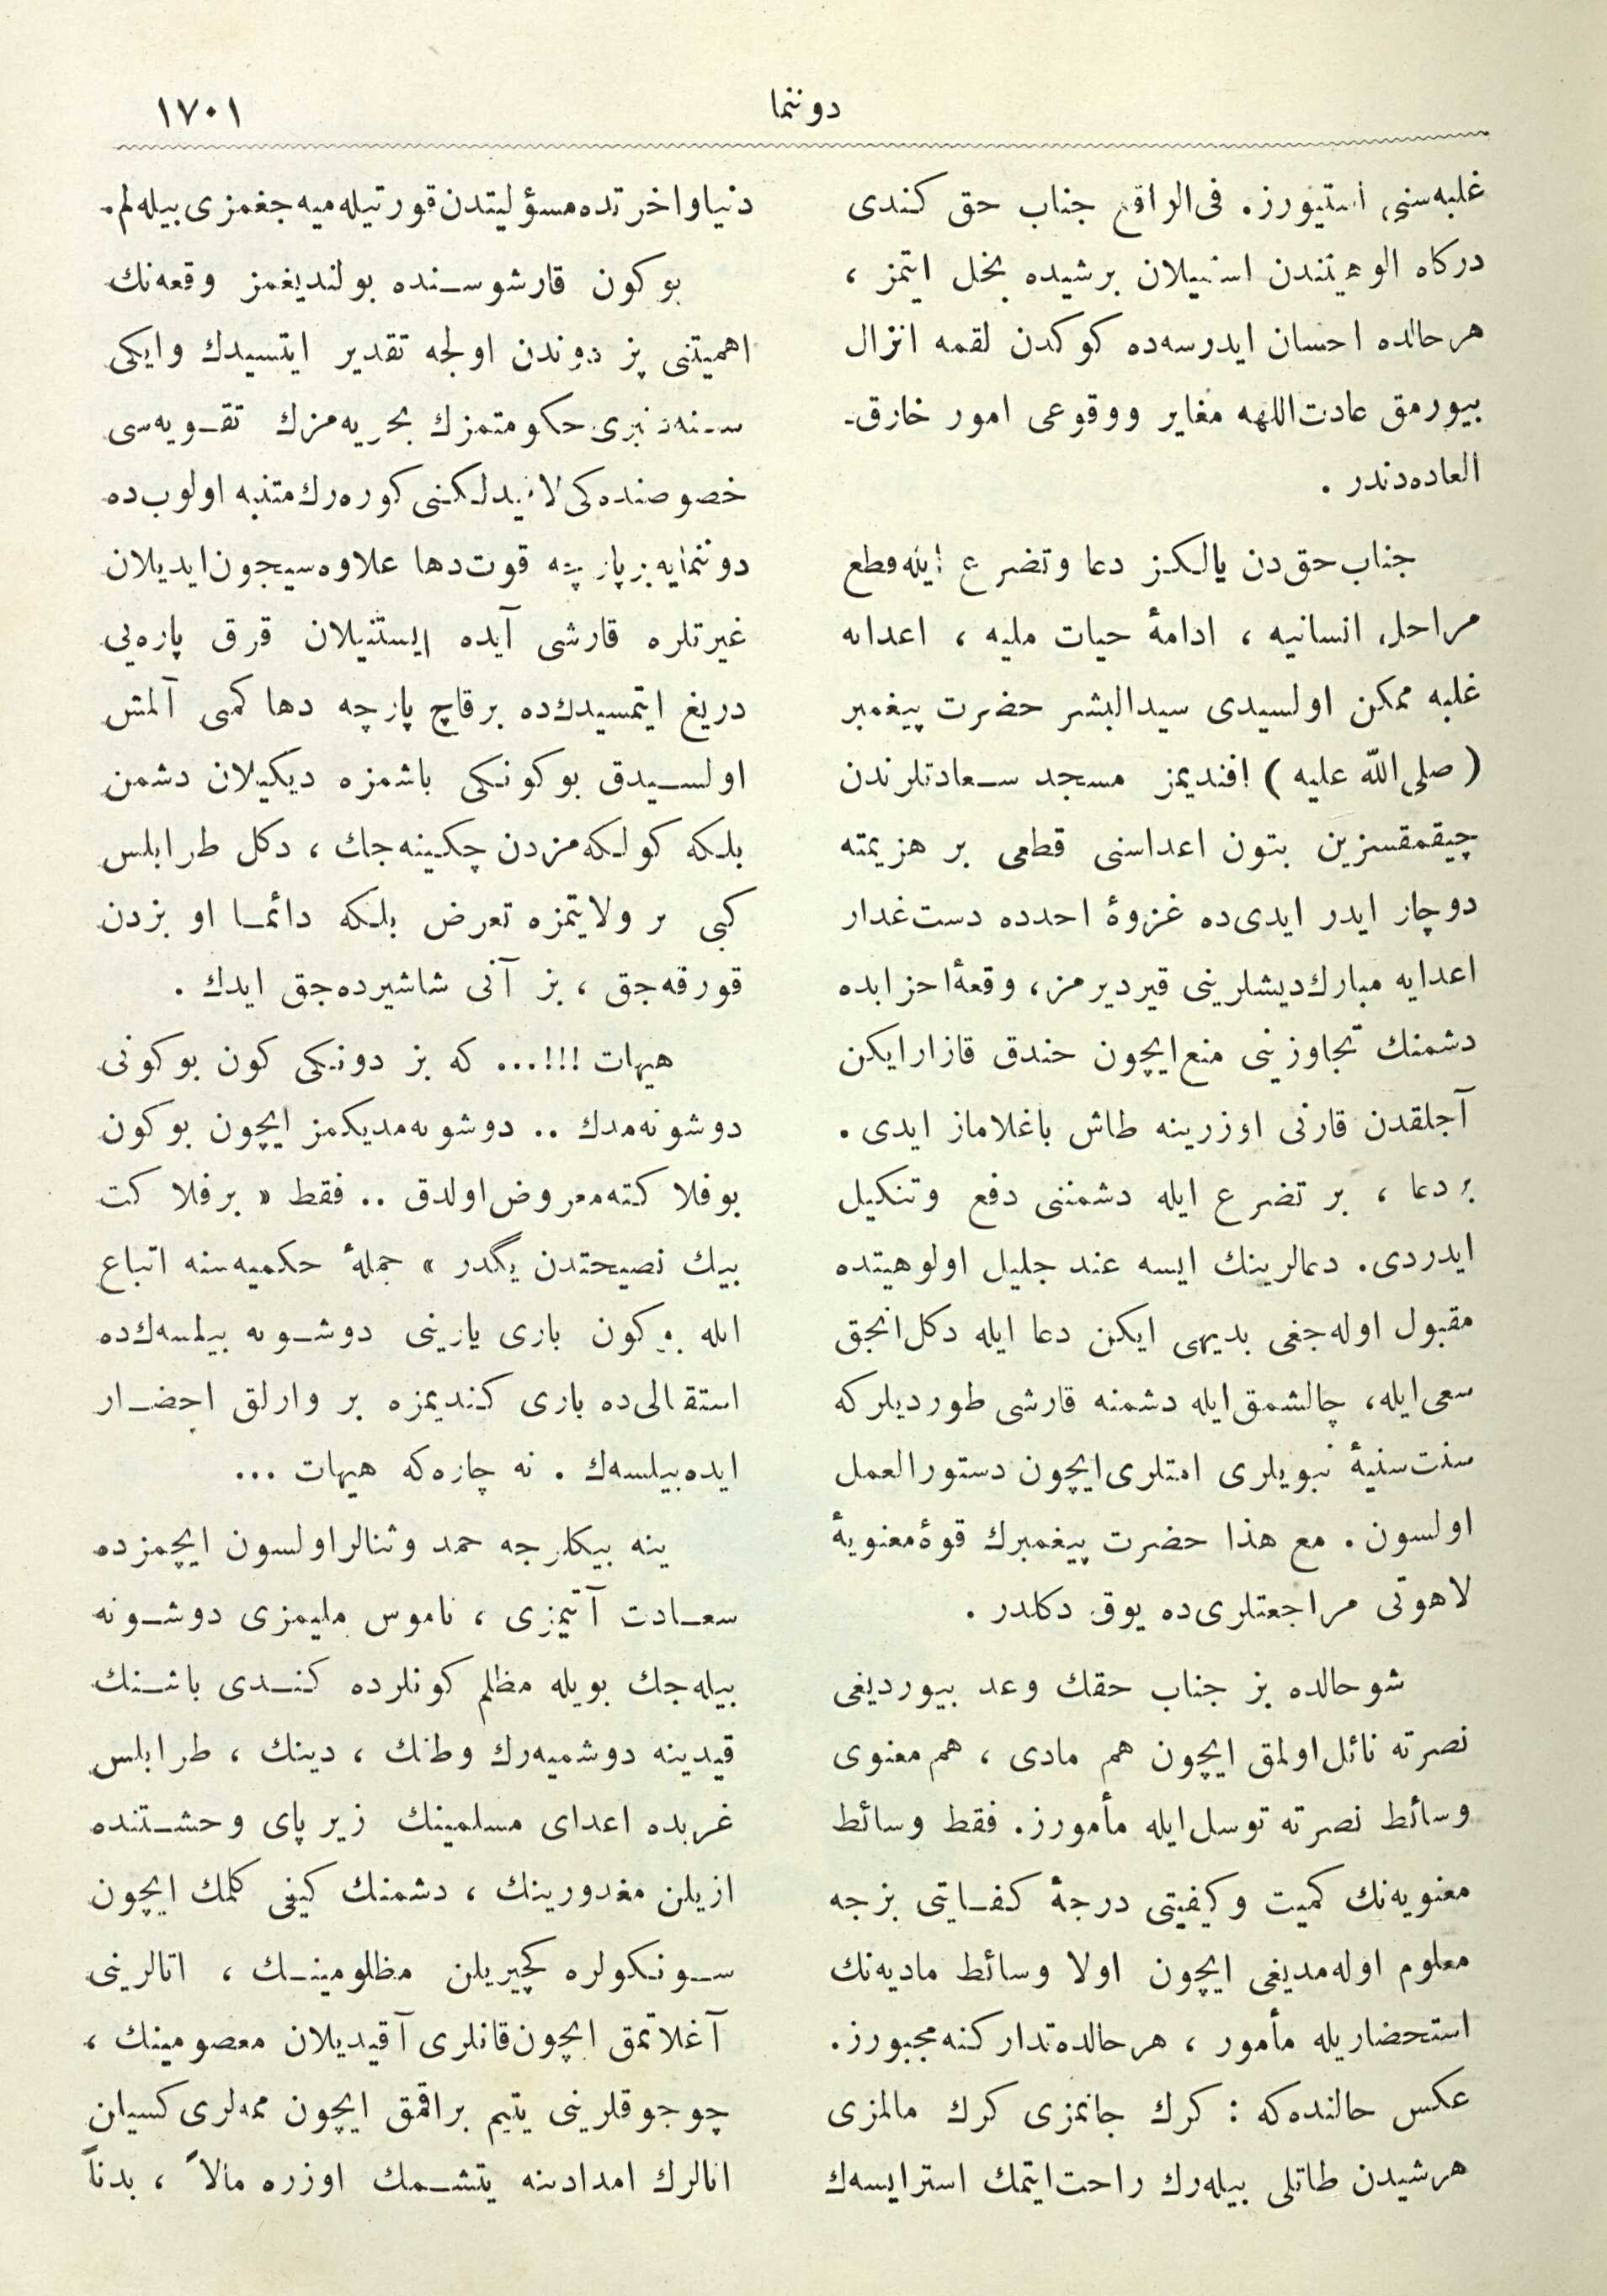 دوننما
١٧٠١
غلبه‌سنی استیورز. فی‌الواقع جناب حق كندی
درگاه الوهیتندن استیلان برشیده بخل ایتمز ،
هر حالده احسان ایدرسه‌ده كوكدن لقمه انزال
بیورمق عادت‌اللهه مغایر ووقوعی امور خارق‌ـ
العاده‌دندر .
جناب حق‌دن یالكز دعا وتضرع ایله قطع
مراحل انسانیه ، ادامهٔ حیات ملیه ، اعدایه
غلبه ممكن اولسیدی سیدالبشر حضرت پیغمبر
( صلی‌الله علیه ) افندیمز مسجد سعادتلرندن
چیقمقسزین بتون اعداسنی قطعی بر هزیمته
دوچار ایدر ایدی‌ده غزوهٔ احدده دست‌غدار
اعدایه مبارك‌دیشلرینی قیردیرمز، وقعهٔ‌احزابده
دشمنك تجاوزینی منع‌ایچون خندق قازارایكن
آجلقدن قارنی اوزرینه طاش باغلاماز ایدی .
بر دعا ، بر تضرع ایله دشمننی دفع وتنكیل
ایدردی. دعالرینك ایسه عند جلیل اولوهیتده
مقبول اوله‌جغی بدیهی ایكن دعا ایله دكل‌انجق
سعی‌ایله، چالشمق‌ایله دشمنه قارشی طوردیلركه
سنت‌سنیهٔ نبویلری امتلری‌ایچون دستورالعمل
اولسون. مع هذا حضرت پیغمبرك قوهٔ‌معنویهٔ
لاهوتی مراجعتلری‌ده یوق دكلدر .
شوحالده بز جناب حقك وعد بیوردیغی
نصرته نائل‌اولمق ایچون هم مادی ، هم معنوی
وسائط نصرته توسل‌ایله مأمورز. فقط وسائط
معنویه‌نك كمیت وكیفیتی درجهٔ كفایتی بزجه
معلوم اوله‌مدیغی ایچون اولا وسائط مادیه‌نك
استحضاریله مأمور ، هرحالده‌تداركنه‌مجبورز.
عكس حالنده‌كه : كرك جانمزی كرك مالمزی
هرشیدن طاتلی بیله‌رك راحت‌ایتمك استرایسه‌ك
دنیاواخرتده‌مسؤلیتدن‌قورتیله‌میه‌جغمزی‌بیله‌لم.
بوكون قارشوسنده بولندیغمز وقعه‌نك
اهمیتنی بز دوندن اولجه تقدیر ایتسیدك وایكی
سنه‌دنبری‌حكومتمزك بحریه‌مزك تقویه‌سی
خصوصنده‌كی‌لاقیدلكنی‌كوره‌رك‌متنبه اولوب‌ده
دوننمایه‌برپارچه قوت‌دها علاوه‌سیچون‌ایدیلان
غیرتلره قارشی آیده ایستنیلان قرق پاره‌یی
دریغ ایتمسیدك‌ده برقاچ پارچه دها كمی آلمش
اولسیدق بوكونكی باشمزه دیكیلان دشمن
بلكه كولكه‌مزدن چكینه‌جك ، دكل طرابلس
كبی بر ولایتمزه تعرض بلكه دائما او بزدن
قورقه‌جق ، بز آنی شاشیرده‌جق ایدك .
هیهات !!!... كه بز دونكی كون بوكونی
دوشونه‌مدك .. دوشونه‌مدیكمز ایچون بوكون
بوفلاكته‌معروض‌اولدق .. فقط « برفلاكت
بیك نصیحتدن یگدر » جملهٔ حكمیه‌سنه اتباع
ایله بوكون باری یارینی دوشونه بیلسه‌ك‌ده
استقبالی‌ده باری كندیمزه بر وارلق احضار
ایده‌بیلسه‌ك . نه چاره‌كه هیهات ...
ینه بیكلرجه حمد وثنالراولسون ایچمزده
سعادت آتیمزی ، ناموس ملیمزی دوشونه
بیله‌جك بویله مظلم كونلرده كندی باشنك
قیدینه دوشمیه‌رك وطنك ، دینك ، طرابلس
غربده اعدای مسلمینك زیر پای وحشتنده
ازیلن مغدورینك ، دشمنك كیفی كلمك ایچون
سونكولره كچیریلن مظلومینك ، اتالرینی
آغلاتمق ایچون‌قانلری آقیدیلان معصومینك ،
چوجوقلرینی یتیم براقمق ایچون ممه‌لری‌كسیلن
انالرك امدادینه یتشمك اوزره مالاً ، بدناً